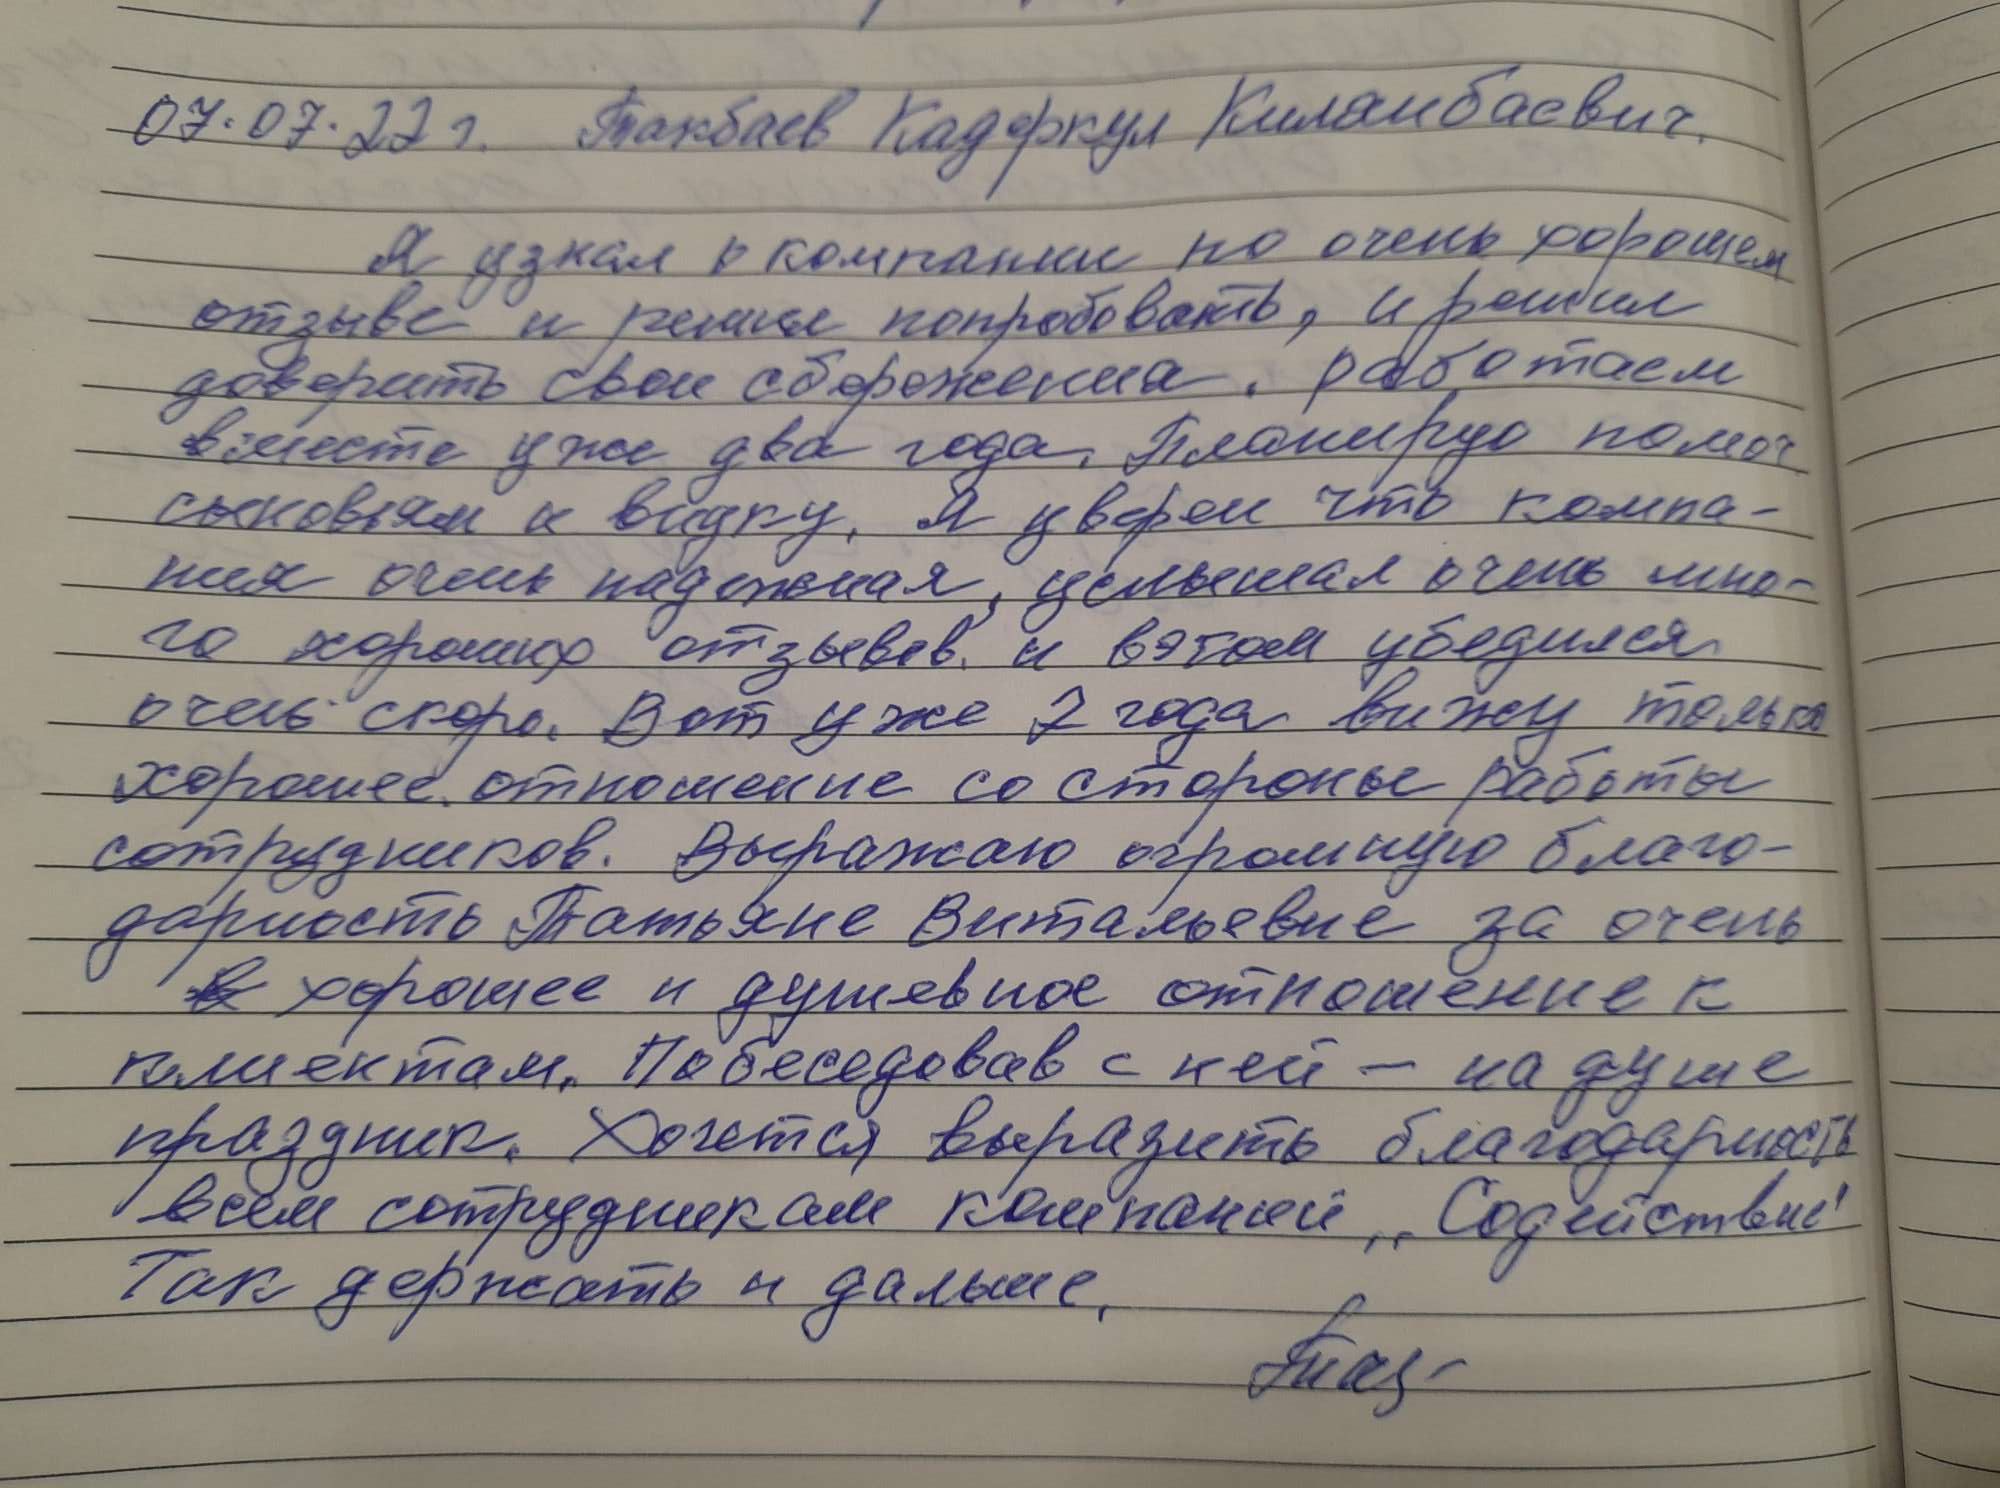 07.07.22 г. Такбаев Кадыркул Киламбаевич.
Я узнал о компании по очень хорошем
отзыве и решил попробовать, и решил
доверить свои сбережения. работаем
вместе уже два года. Планирую помоч
сыновьям и внуку. Я уверен что компа-
ния очень надежная, услышал очень мно-
го хороших отзывов. и в этом убедился
очень скоро. Вот уже 2 года вижу только
хорошее отношение со стороны работы
сотрудников. Выражаю огромную благо-
дарность Татьяне Витальевне за очень
хорошее и душевное отношение к
клиентам. Побеседовав с ней - на душе
праздник. Хочется выразить благодарность
всем сотрудникам компаний „Содействие"
Так держать и дальше.